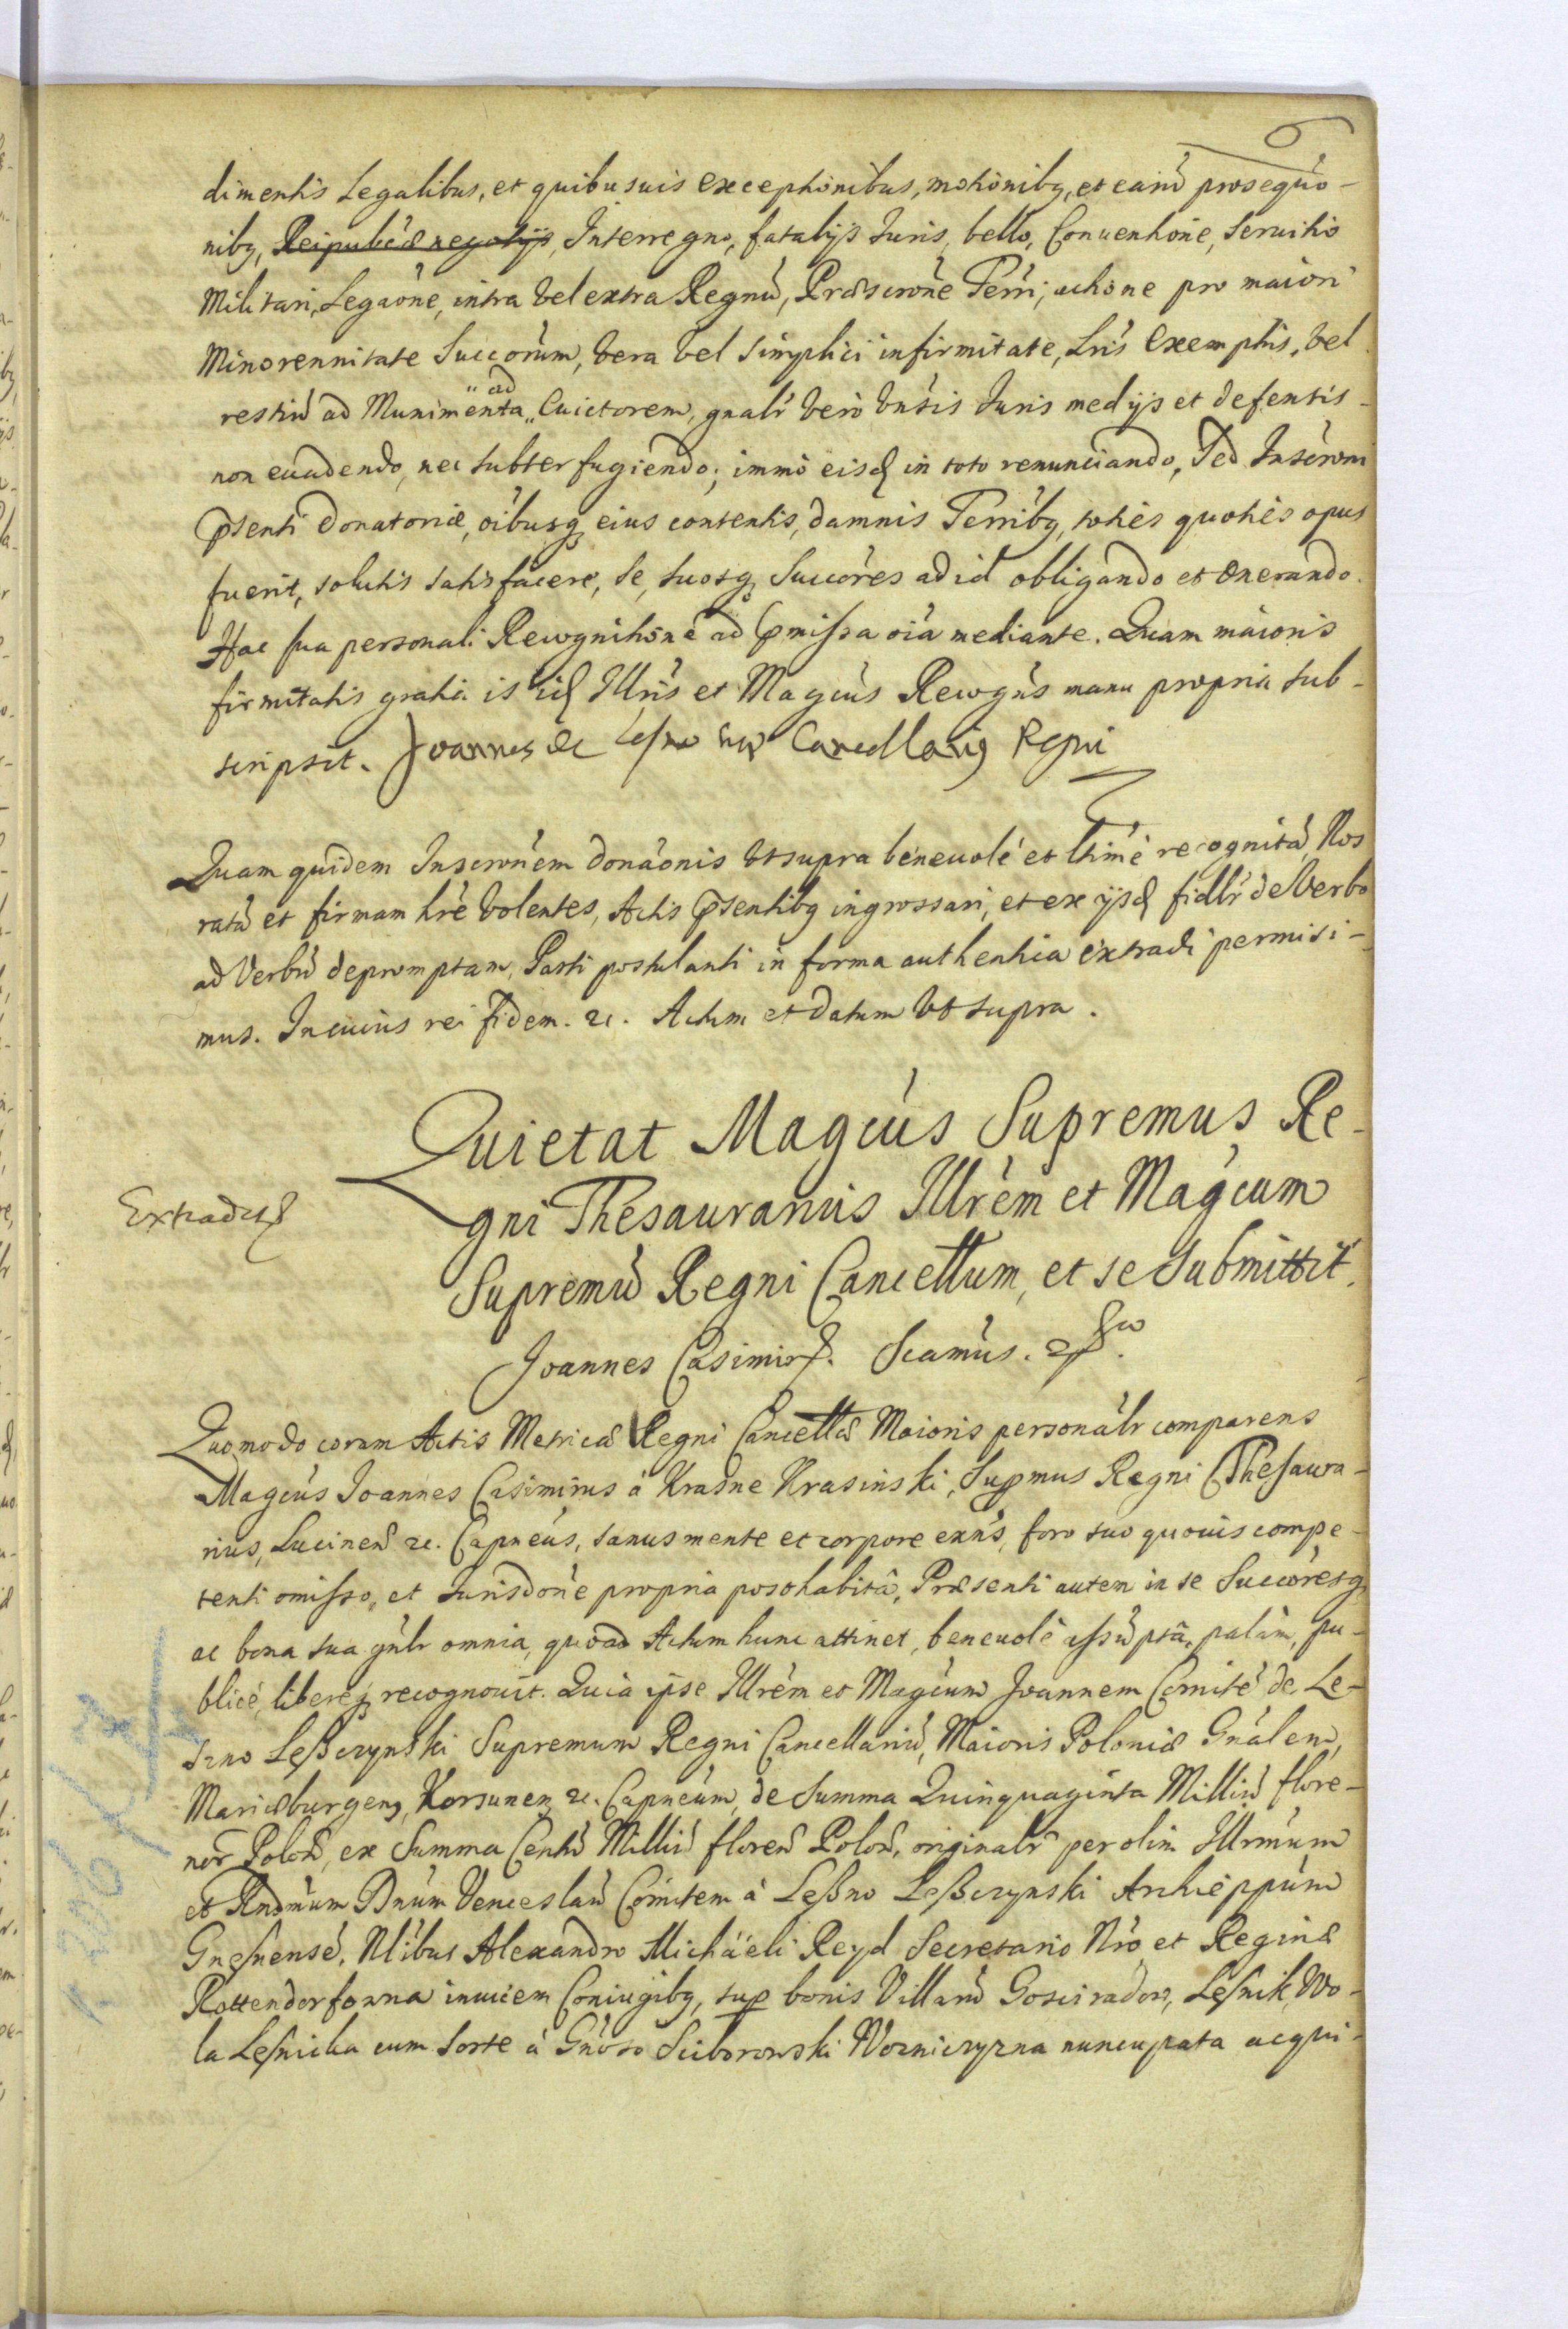 6
dimentis Legalibus, et quibusuis exceptionibus, motionibq, et earũ prosequto-
nibq, Reipublicæ negotijs, Interregno, fatalijs Iuris, bello, Conuentione, seruitio
Militari, Legaône, intra vel extra Regnũ, Præscrône Terri, actione pro maiori
Minorennitate Succorum, vera vel simplici infirmitate, Lris Exemptis, vel
restiũ ad Munimenta "ad" Euictorem, gnalr vero vnsis Iuris medijs et defensis
non euadendo, nec subterfugiendo; immò eisd in toto renunciando, Sed Inscrôni
pñsenti donatoriæ, oibusq eius contentis, damnis Terribq, toties quoties opus
fuerit, solutis satisfacere, se, suosq Succores ad id obligando et onerando.
Hac sua personali Recognitione ad pmissa oia mediante. Quam maioris
firmitatis gratia is id Illris et Magcus Recogns manu propria sub-
scripsit. Joannes de Leszno Cancellariq Regni
Quam quidem Inscronem donaonis vt supra beneuolè et ltime recognitã Nos
ratã et firmam hre volentes, Actis pñsentibq ingrossari, et ex ijsd fidlr de Verbo
ad Verbũ depromptam, Parti postulanti in forma authentica extradi permisi-
mus. In cuius rei fidem. &c. Actum et datum vt supra.
Quietat Magcus Supremus Re-
gni Thesaurarius Illrem et Magcum
Supremũ Regni Cancellum, et se submittit.
Extradit
Joannes Casimir. Scamus.
Quomodo coram Actis Metricæ Regni Cancellæ Maioris personalr comparens
Magcus Joannes Casimirus à Krasne Krasinski, Supmus Regni Thesaura-
rius, Lucinen &c. Capneus, sanus mente et corpore exns, foro suo quouis compe-
tenti omisso, et Iurisdone propria posthabitâ, Præsenti autem in se Succoresq
ac bona sua gnlr omnia, quoad Actum hunc attinet, beneuolè assũptâ, palàm, pu-
blicè, libereq recognouit. Quia ipse Illrem et Magcum Joannem Comitẽ de Le-
szno Leßczynski Supremum Regni Cancellariũ, Maioris Poloniæ Gnalem,
Mariæburgen, Korsunen &c. Capneum, de Summa Quinquaginta Milliũ flore-
nor Polon, ex Summa Centũ Milliũ floren Polon, originalr per olim Illrmum
et Rndmum Dnum Venceslaũ Comitem à Leßno Leßczynski Archieppum
Gnesnensẽ, Nlibus Alexandro Michaëli Reyd Secretario Nro et Reginæ
Rottendorfowna inuicem Coniugibq, sup bonis Villarũ Gosciradow, Lesnik, Wo-
la Lesnicka cum sorte à Gnoso Sciborowski Woznicyzna nuncupata acqui-